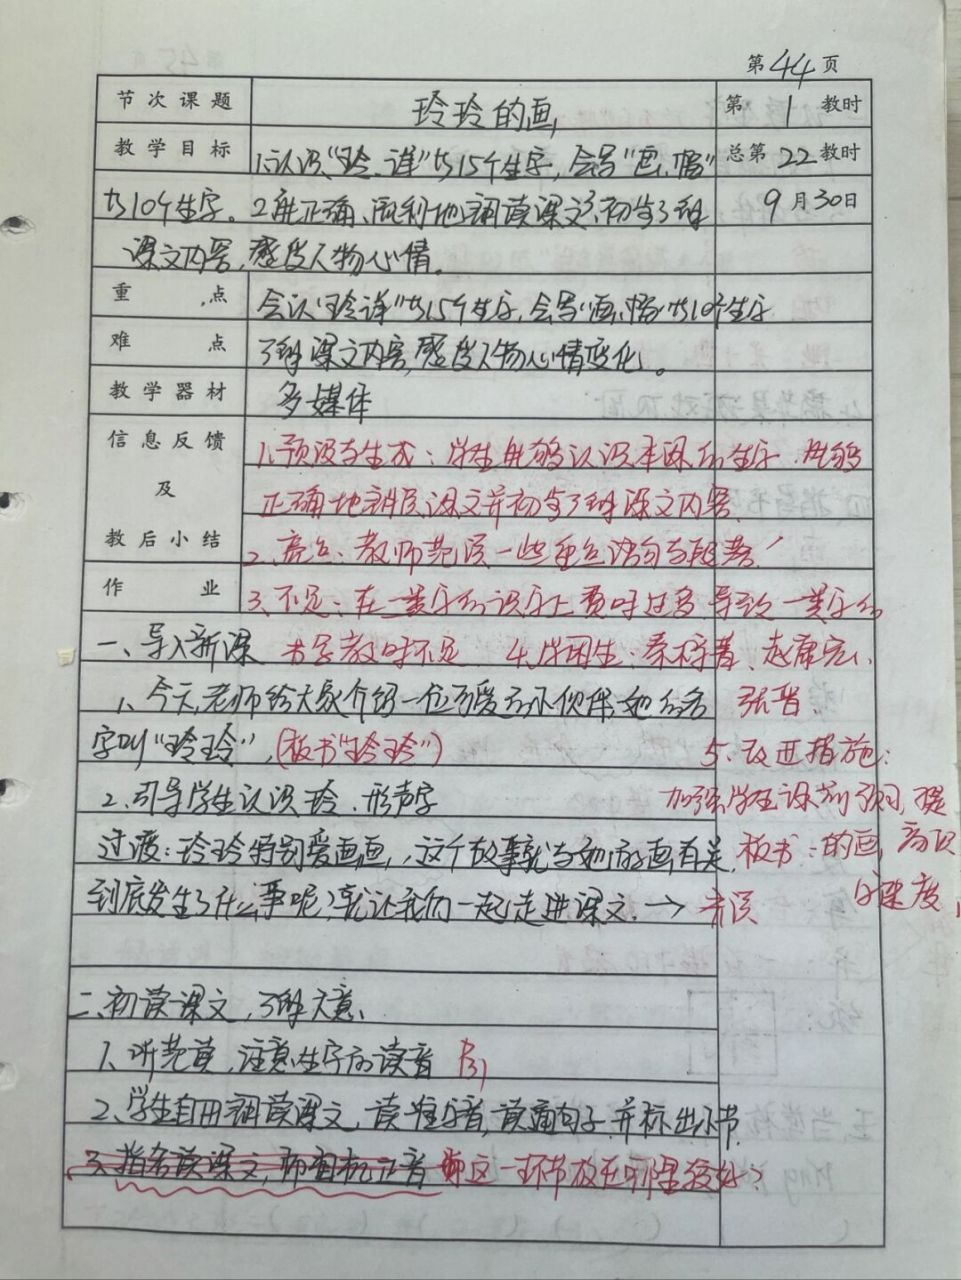 第44页
节次课题 玲玲的画 第1教时
教学目标 1.认识“玲、详”等15个生字,会写“画、幅” 总第22教时
等10个生字。2.能正确、流利地朗读课文,初步了解 9月30日
课文内容,感受人物心情。
重点 会认“玲详”等15个生字,会写“画、幅”等10个生字
难点 了解课文内容,感受人物心情变化。
教学器材 多媒体
信息反馈 1.预设与生成:学生能够认识本课的生字.能够
及 正确地朗读课文并初步了解课文内容.
教后小结 2.亮点:教师范读一些重点语句与段落!
作业 3.不足:在一类字的识字上费时过多,导致一类字的
一、导入新课 书写教时不足 4.学困生:秦梓菁、赵康宏、
1、今天,老师给大家介绍一位可爱的小伙伴,她的名 张晋
字叫“玲玲”,(板书“玲玲”) 5.改进措施:
2.引导学生认识玲.形声字 加强学生课前预习,提
过渡:玲玲特别爱画画,这个故事就与她的画有关, 板书:的画 高识
到底发生了什么事呢?就让我们一起走进课文.→ 齐读 字速度
二、初读课文,了解大意.
1、听范读,注意生字的读音
2、学生自由朗读课文,读准字音,读通句子,并标出小节.
3、指名读课文,师相机正音 这一环节放在哪里较好?